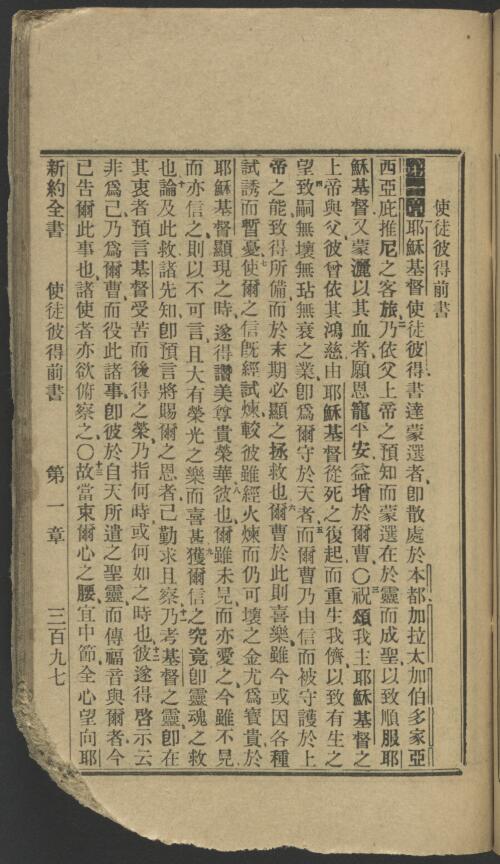 使徒彼得前書
第一章耶穌基督使徒彼得書達蒙選者卽散處於本都加拉太加伯多家亞
西亞庇推尼之客旅二乃依父上帝之預知而蒙選在於靈而成聖以致順服耶
穌基督又蒙灑以其血者願恩寵平安益增於爾曹〇三祝頌我主耶穌基督之
上帝與父彼曾依其鴻慈由耶穌基督從死之復起而重生我儕以致有生之
望四致嗣無壞無玷無衰之業卽爲爾守於天者五而爾曹乃由信而被守護於上
帝之能致得所備而於末期必顯之拯救也六爾曹於此則喜樂雖今或因各種
試誘而暫憂七使爾之信旣經試煉較彼雖經火煉而仍可壞之金尤爲寶貴於
耶穌基督顯現之時遂得讚美尊貴榮華彼也八爾雖未見而亦愛之今雖不見
而亦信之則以不可言且大有榮光之樂而喜甚九獲爾信之究竟卽靈魂之救
也十論及此救諸先知卽預言將賜爾之恩者已勤求且察十一乃考基督之靈卽在
其衷者預言基督受苦而後得之榮乃指何時或何如之時也十二彼遂得啓示云
非爲己乃爲爾曹而役此諸事卽彼於自天所遣之聖靈而傳福音與爾者今
已告爾此事也諸使者亦欲俯察之〇十三故當束爾心之腰宜中節全心望向耶
新約全書 使徒彼得前書 第一章 三百九七